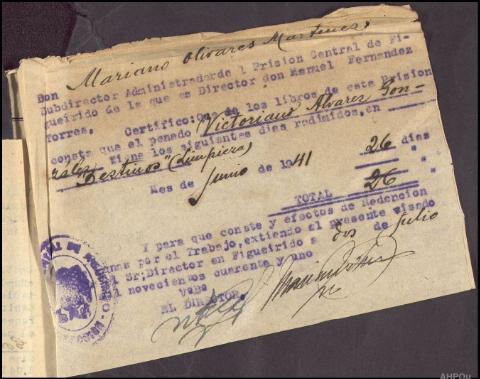 Don Mariano Olivares Martinez
Subdirector Administrador de l Prision Central de Fi-
gueirido de la que es Director don Manuel Fernandez
Torres.
Certifico: de los libros de esta Prision
consta que el penado (Victoriano Alvarez Gon-
tiene los siguientes dias redimidos, en
Destinos "(Limpieza)
Mes de Junio de 1941 26 dias
TOTAL 26 "
Y para que conste y efectos de Redencion
enas por el Trabajo, extiendo el presente visado
l Sr. Director en Figueirido a dos de julio
l novecientos cuarenta y uno
VºBº
EL DIRECTOR,
AHPOu